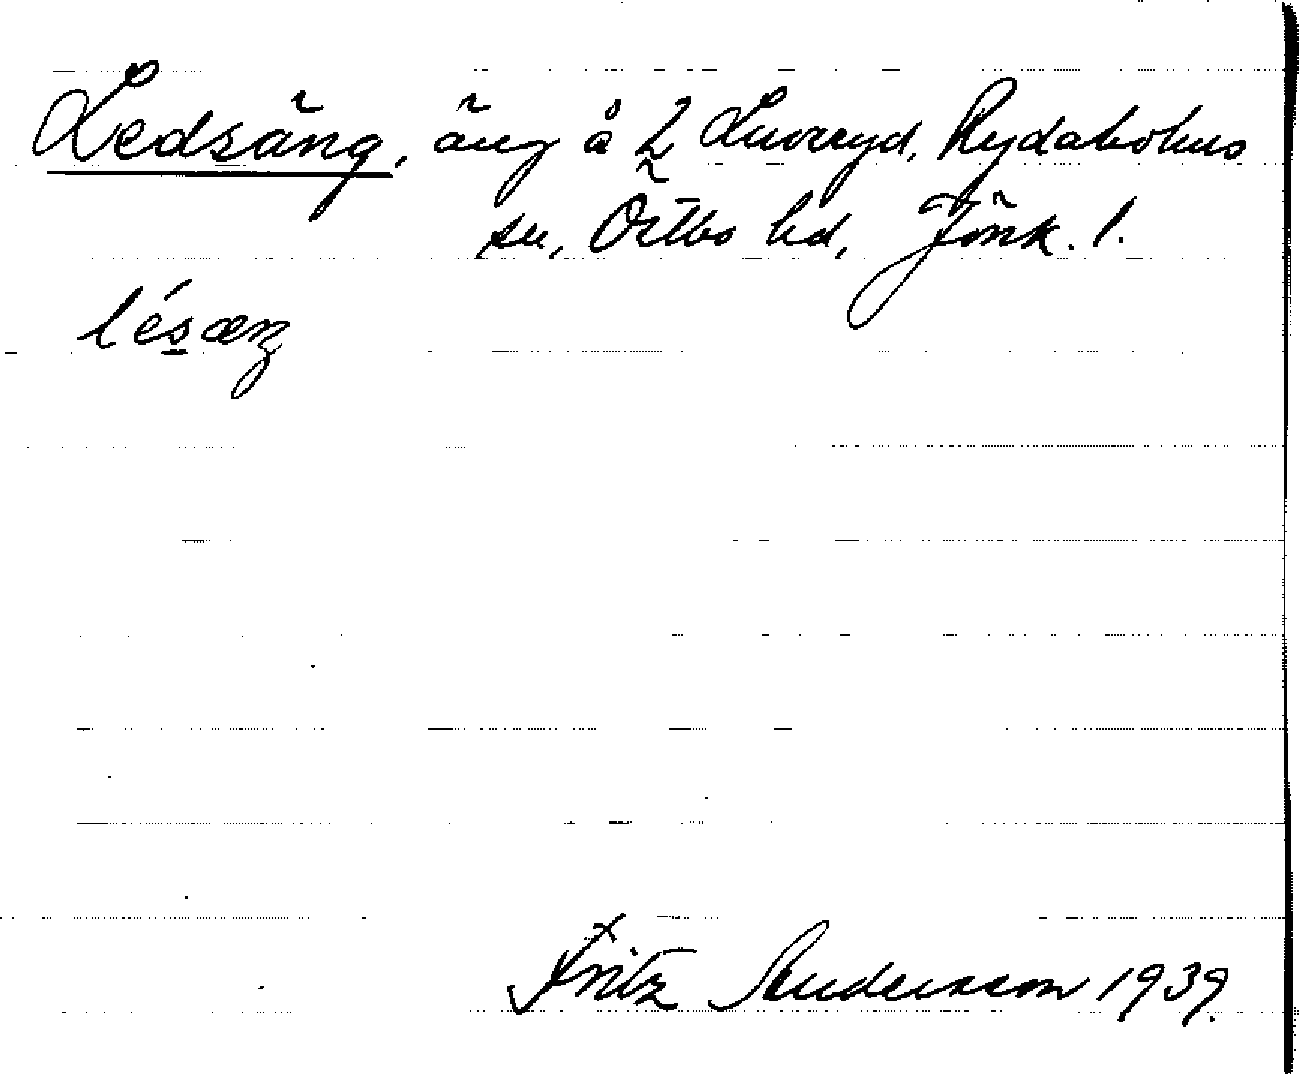 Ledsäng, äng å 2 Luveryd, Rydaholms
sn, Östbo hd, Jönk. l.
lésæŋ
Fritz Andersson 1939.